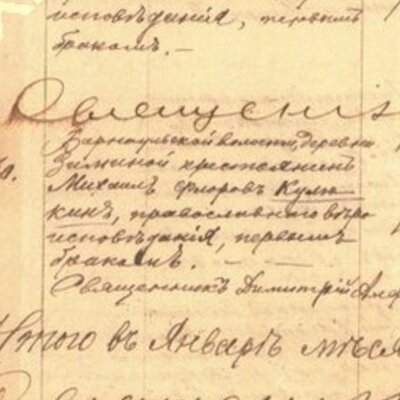 исповѣданія, первымъ
бракомъ. —
Священн
Барнаульской волости, деревни
Зиминой крестьянинъ
10. Михаилъ Флоровъ Кулю
кинъ, православнаго вѣро
исповѣданія, первымъ
бракомъ. — —
Священникъ Димитрій
Итого въ Январѣ мѣся